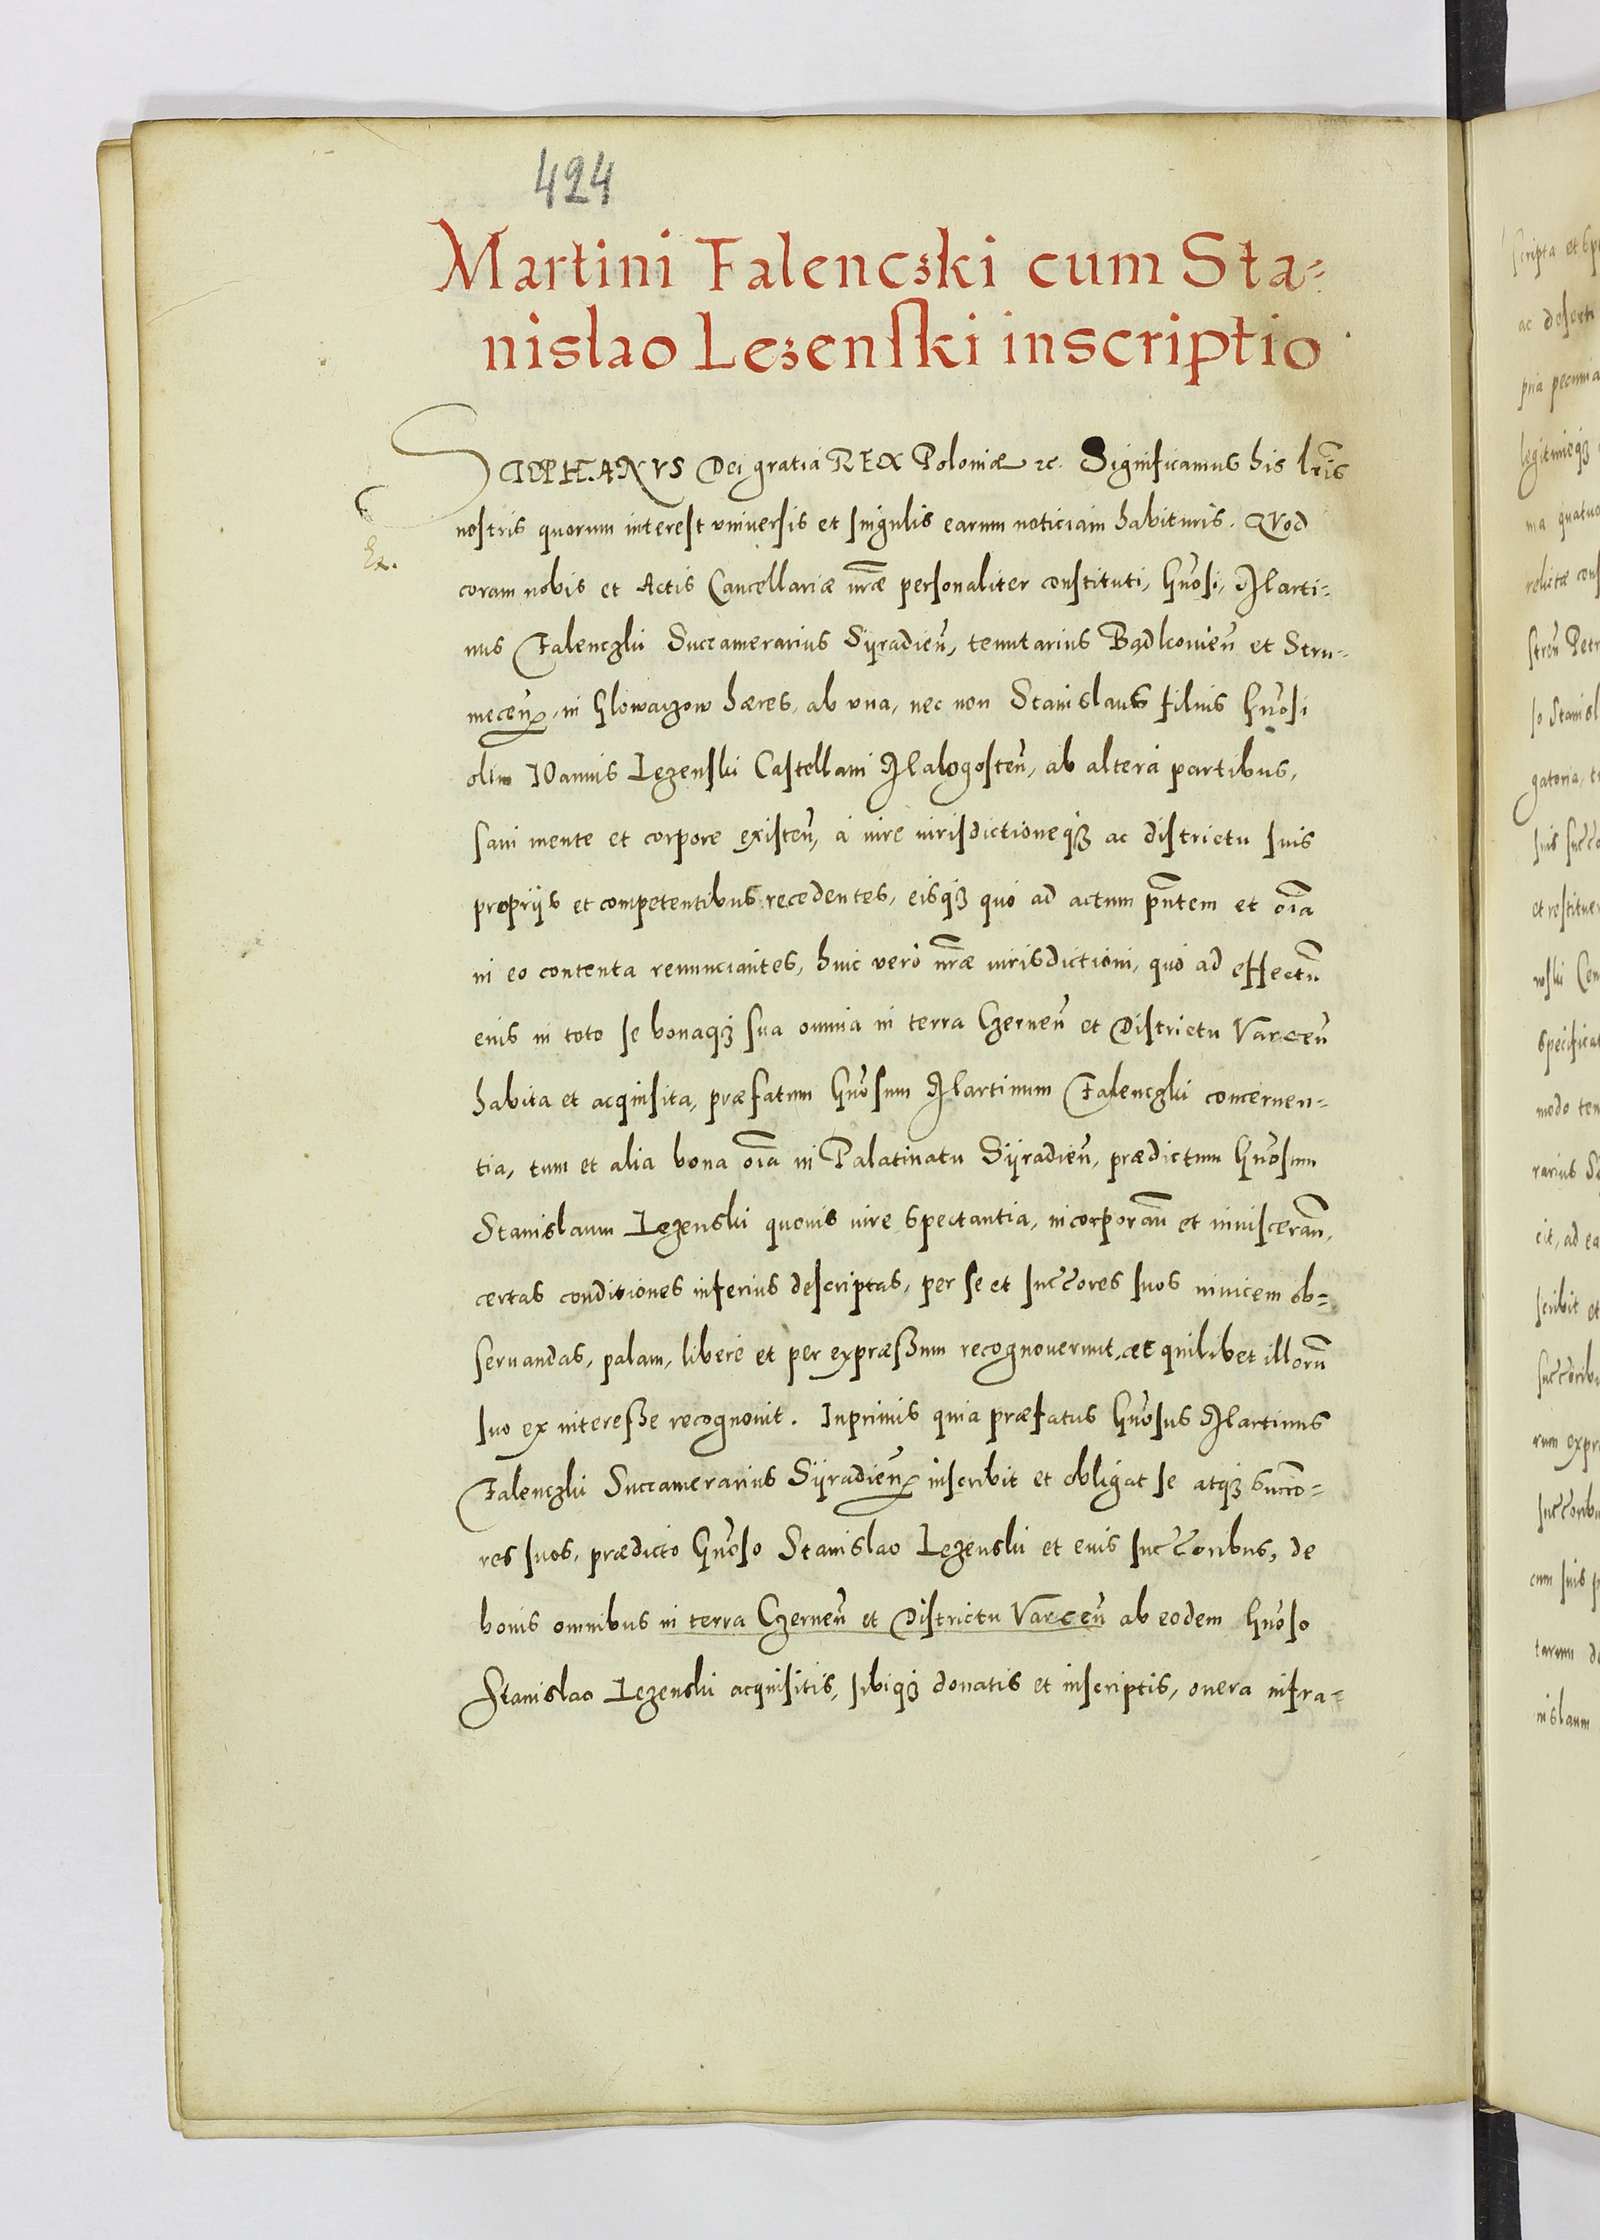 424
Martini Falenczki cum Sta-
nislao Lezenski inscriptio
STEPHANVS Dei gratia REX Poloniæ etc. Significamus his lr̃is
nostris quorum interest vniuersis et singulis earum noticiam habituris. Quod
coram nobis et Actis Cancellariæ nr̃æ personaliter constituti, Gn̄osi, Marti-
nus Falenczki Succamerarius Syradien̄, tenutarius Bądkouien̄ et Stru-
mecen̄, in Glowaczow hæres, ab vna, nec non Stanislaus filius Gn̄osi
olim Ioannis Lezenski Castellani Malogosten̄, ab altera partibus,
sani mente et corpore existen̄, à iure iurisdictioneqȝ ac districtu suis
proprijs et competentibus recedentes, eisqȝ quó ad actum pn̄tem et oīa
in eo contenta renunciantes, huic verò nr̃æ iurisdictioni, quò ad effectū
eius in toto se bonaqȝ sua omnia in terra Czernen̄ et Districtu Varcen̄
habita et acquisita, præfatum Gn̄osum Martinum Falenczki concernen-
tia, tum et alia bona oīa in Palatinatu Syradien̄, prædictum Gn̄osum
Stanislaum Lezenski quouis iure spectantia, incorporan̄ et inuisceran̄,
certas conditiones inferius descriptas, per se et succ̄ores suos inuicem ob-
seruandas, palam, liberè et per expræssum recognouerunt, et quilibet illorū
suo ex interesse recognouit. Inprimis quia præfatus Gn̄osus Martinus
Falenczki Succamerarius Syradien̄ inscribit et obligat se atqȝ succ̄o-
res suos, prædicto Gn̄oso Stanislao Lezenski et eius succ̄oribus, de
bonis omnibus in terra Czernen̄ et Districtu Varcen̄ ab eodem Gn̄oso
Stanislao Lezenski acquisitis, sibiqȝ donatis et inscriptis, onera infra-